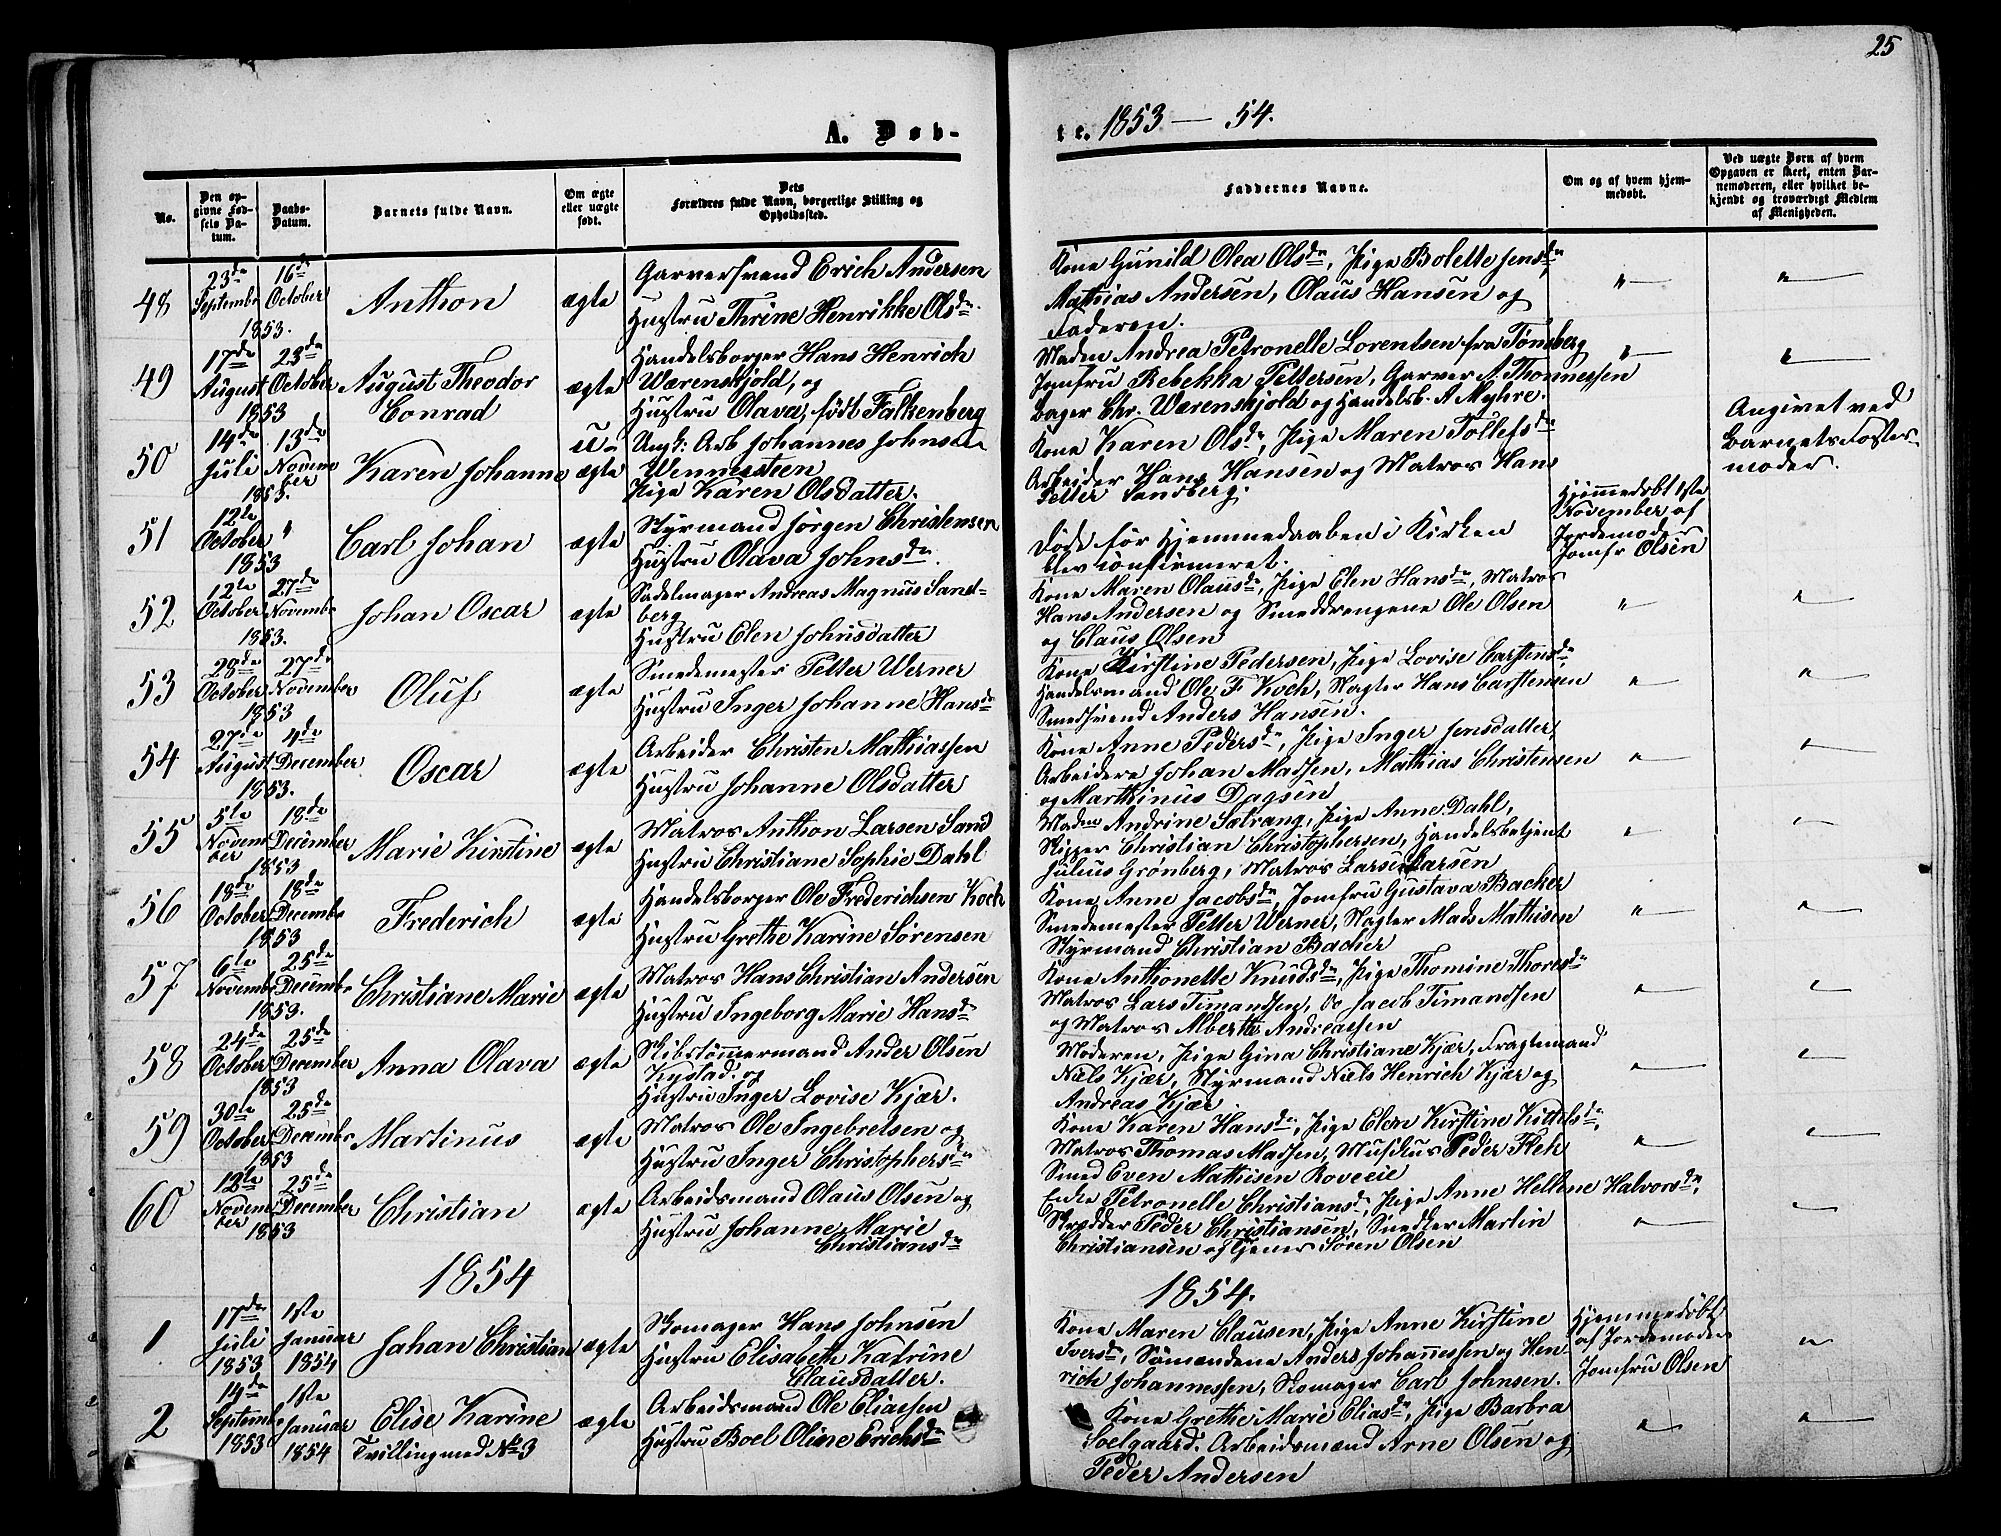 25
A. Døb-
te. 1853 — 54.
No.
Den opgivne Fødsels Datum.
Daabs-Datum.
Barnets fulde Navn.
Om ægte eller uægte født.
Dets Forældres fulde Navn, borgerlige Stilling og Opholdssted.
Faddernes Navne.
Om og af hvem hjemmedøbt.
Ved uægte Børn af hvem Opgaven er skeet, enten Barnemoderen, eller hvilket bekjendt og troværdigt Medlem af Menigheden.
48
23de September 1853.
16de October
Anthon
ægte
Garversvend Erich Andersen
Hustru Thrine Henrikke Olsdr.
Kone Gunild Olea Olsdr, Pige Bolette Jensdr
Mathias Andersen, Olaus Hansen og
Faderen.
"
"
49
17de August 1853
23de October
August Theodor
Conrad
ægte
Handelsborger Hans Henrich
Wærenskjold, og
Hustru Olava, født Falkenberg
Madm Andrea Petronelle Lorentsen fra Tønsberg
Jomfru Rebekka Pettersen, Garver A. Thonnessen
Bager Chr. Wærenskjold og Handelsb. A Myhre.
"
"
50
14de Juli 1853.
13de November
Karen Johanne
u-
ægte
Ungk: Arb Johannes Johnsen
Wennesteen
Pige Karen Olsdatter.
Kone Karen Olsdr, Pige Maren Tollefsdr
Arbeider Hans Hansen og Matros Hans
Petter Sandberg.
Angivet ved
Barnets Foster-
moder.
51
12te October 1853
"
Carl Johan
ægte
Styrmand Jörgen Christensen
Hustru Olava Johnsdr.
Døde før Hjemmedaaben i Kirken
blev confirmeret.
Hjemmedøbt 1ste
November af
Jordemoder
Jomfr Olsen
52
12te October 1853.
27de November
Johan Oscar
ægte
Sadelmager Andreas Magnus Sand-
berg
Hustru Elen Johnsdatter
Kone Maren Olausdr, Pige Elen Hansdr, Matros
Hans Andersen og Smeddrengene Ole Olsen
og Claus Olsen
"
"
53
28de October 1853
27de November
Oluf
ægte
Smedemester Petter Werner
Hustru Inger Johanne Hansdr
Kone Kirstine Pedersen, Pige Lovise Carstensdr,
Handelsmand Ole F Koch, Slagter Hans Carstensen
Smedsvend Anders Hansen.
"
"
54
27de August 1853.
4de December
Oscar
ægte
Arbeider Christen Mathiassen
Hustru Johanne Olsdatter
Kone Anne Pedersdr, Pige Inger Jensdatter,
Arbeidere Johan Madsen, Mathias Christensen
og Marthinus Dagsen
"
"
55
5te November 1853
18de December
Marie Kirstine
ægte
Matros Anthon Larsen Sand
Hustru Christiane Sophie Dahl
Madm Andrine Satrang, Pige Anne Dahl,
Skipper Christian Christophersen, Handelsbetjent
Julius Grönberg, Matros Larsen
"
"
56
18de October 1853
18de December
Frederich
ægte
Handelsborger Ole Frederichsen Koch
Hustru Grethe Karine Sørensen
Kone Anne Jacobsdr, Jomfru Gustava Backer
Smedemester Petter Werner, Slagter Mads Mathisen
Styrmand Christian Backer
"
"
57
6te November 1853.
25de December
Christiane Marie
ægte
Matros Hans Christian Andersen
Hustru Ingeborg Marie Hansdr
Kone Anthonette Knudsdr, Pige Thomine Thoresdr
Matros Lars Timandsen, Do Jacob Timandsen
og Matros Alberth Andreassen
"
"
58
24de October 1853
25de December
Anna Olava
ægte
Skibstømmermand Ander Olsen
Kystad. og
Hustru Inger Lovise Kjær.
Moderen, Pige Gina Christiane Kjær, Fragtemand
Niels Kjær, Styrmand Niels Henrich Kjær og
Andreas Kjær.
"
"
59
30te October 1853
25de December
Martinus
ægte
Matros Ole Ingebretsen og
Hustru Inger Christophersdr
Kone Karen Hansdr, Pige Elen Kirstine Kittelsdr,
Matros Thomas Madsen, Musikus Peder Flek
Smed Even Mathisen
"
"
60
12te November 1853
25de December
Christian
ægte
Arbeidsmand Olaus Olsen og
Hustru Johanne Marie
Christiansdr
Enke Petronelle Christiansdr, Pige Anne Hellene Halvorsdr,
Skrædder Peder Christiansen, Snedker Martin
Christiansen og Tjener Sören Olsen
"
"
1854
1854.
1
17de Juli 1853
1ste Januar 1854
Johan Christian
ægte
Skomager Hans Johnsen
Hustru Elisabeth Katrine
Clausdatter.
Kone Maren Clausen, Pige Anne Kirstine
Iversdr, Sömændene Anders Johannessen og Hen
rich Johannessen, Skomager Carl Johnsen.
Hjemmedøbt
af Jordemoder
Jomfru Olsen
"
2
14de September 1853
1ste Januar 1854
Elise Karine
Tvilling med No 3
ægte
Arbeidsmand Ole Eliassen
Hustru Boel Oline Erichsdr
Kone Grethe Marie Eliasdr, Pige Barbra
Soelgaard. Arbeidsmænd Arne Olsen og
Peder Andersen
"
"